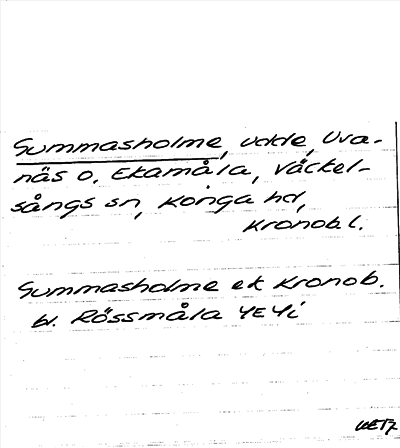 Summasholme, udde, Uva-
näs o. Ekamåla, Väckel-
sångs sn, Konga hd,
Kronob l.
Summasholme ek Kronob.
bl. Rössmåla 4E4i